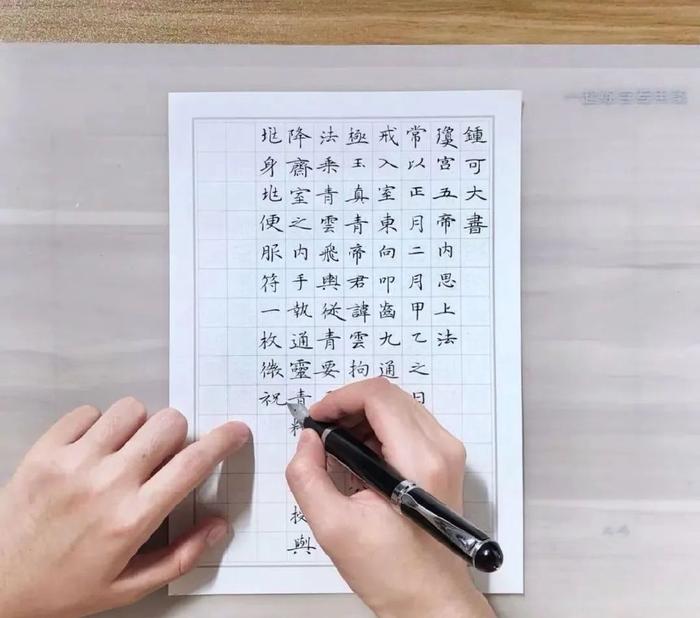 鍾可大書
瓊宮五帝內思上法
常以正月二月甲乙之日
戒入室東向叩齒九通
極玉真青帝君諱雲拘
法乘青雲飛輿從青要
降齋室之內手執通靈青授與
兆身兆便服符一枚微祝